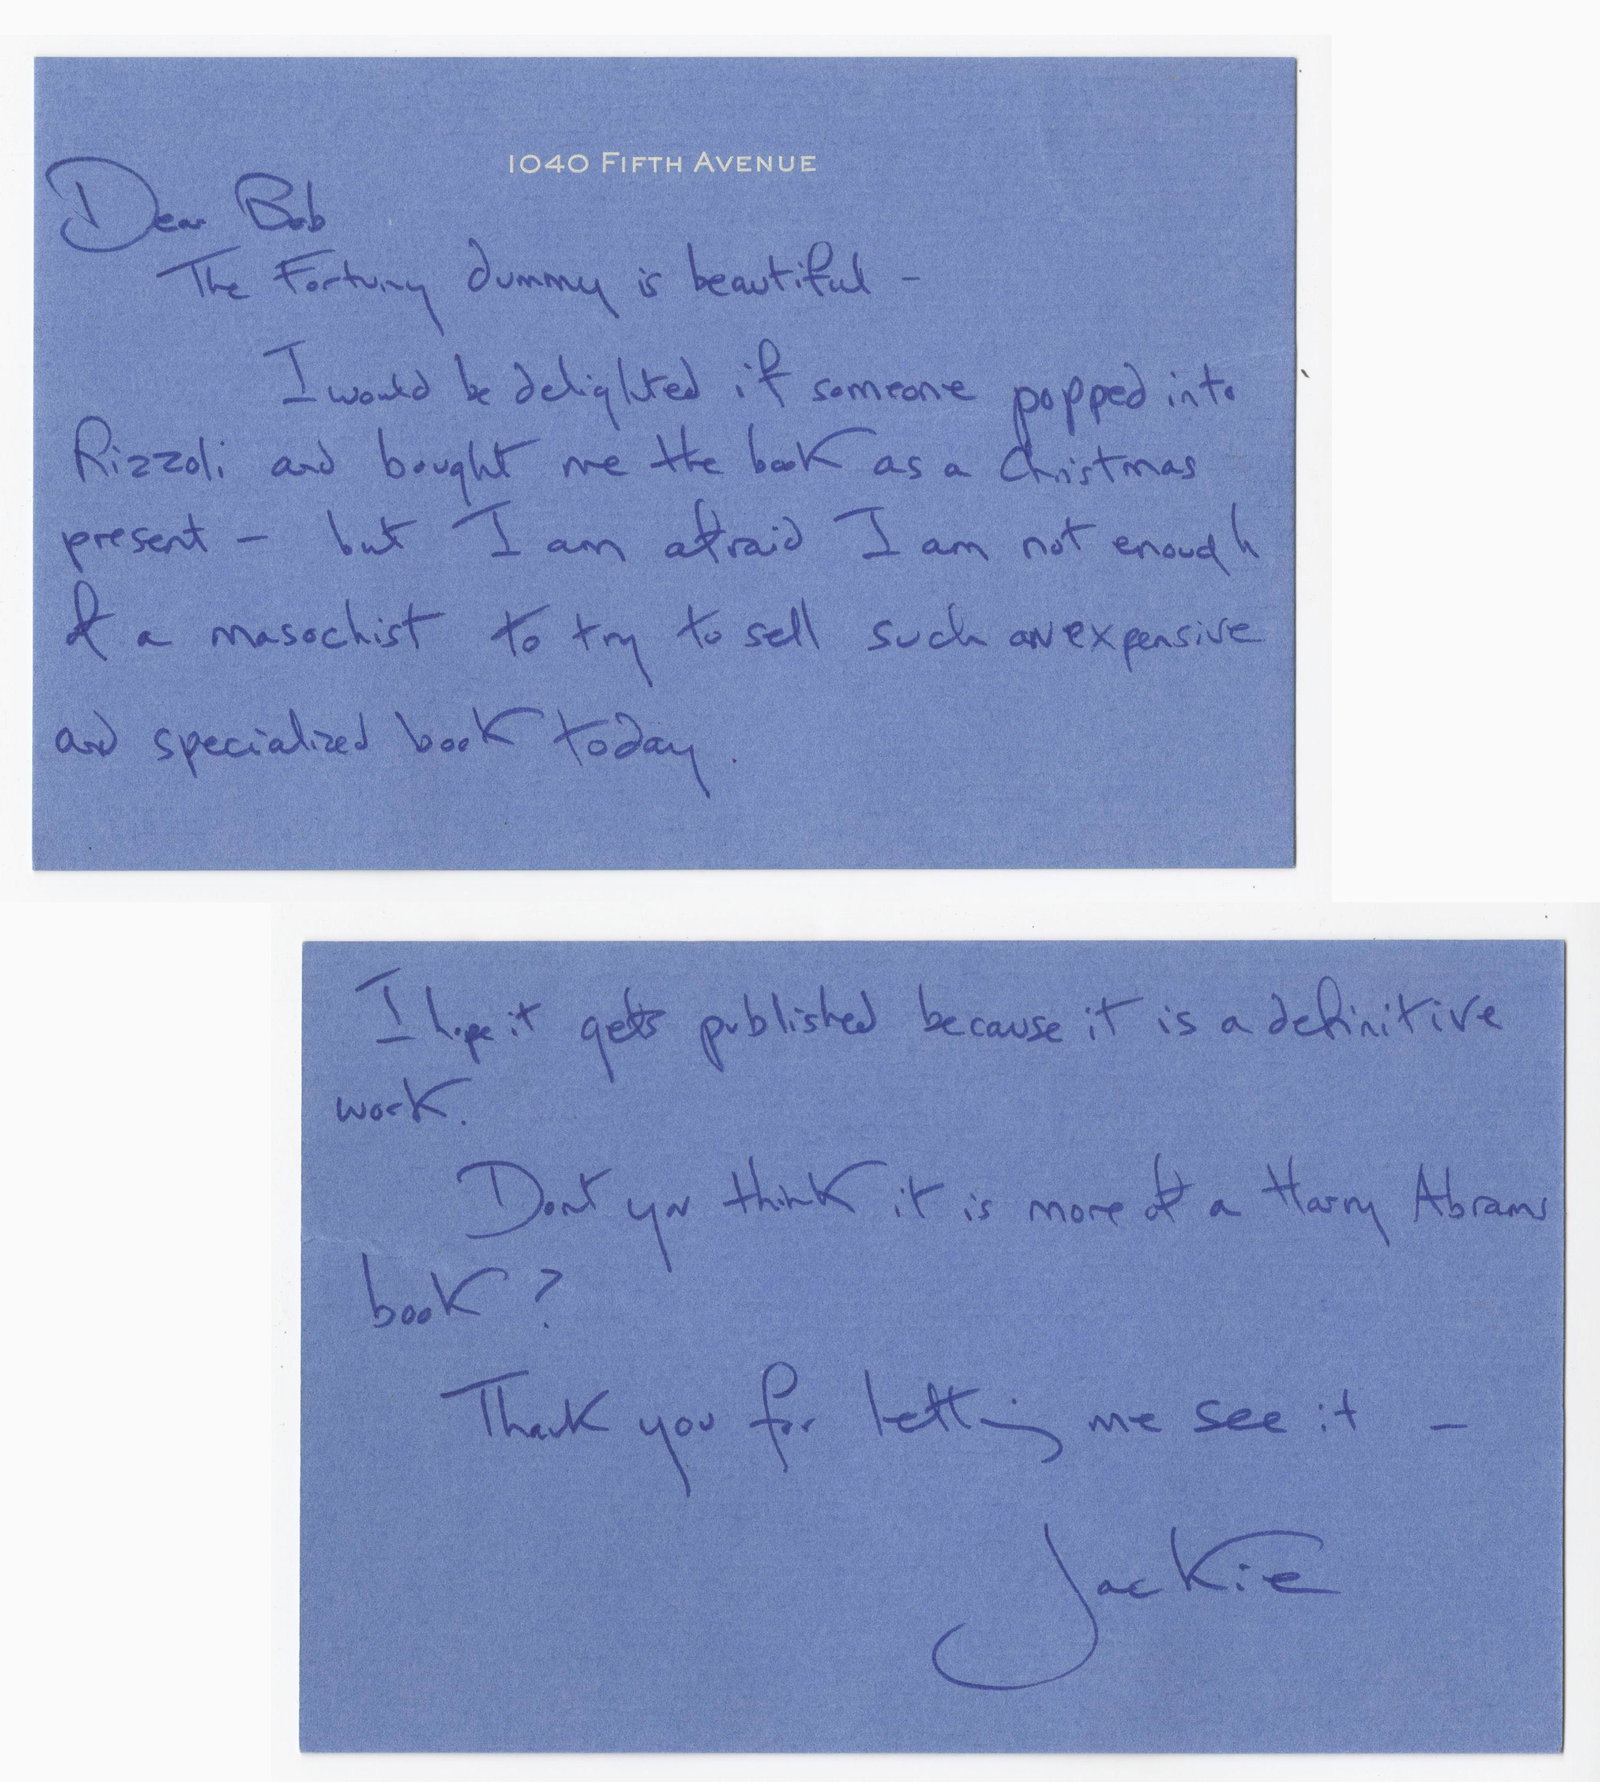 1040 FIFTH AVENUE
Dear Bob
The Fortuny dummy is beautiful -
I would be delighted if someone popped into
Rizzoli and bought me the book as a Christmas
present - but I am afraid I am not enough
of a masochist to try to sell such an expensive
and specialized book today.
I hope it gets published because it is a definitive
work.
Dont you think it is more of a Harry Abrams
book?
Thank you for letting me see it -
Jackie